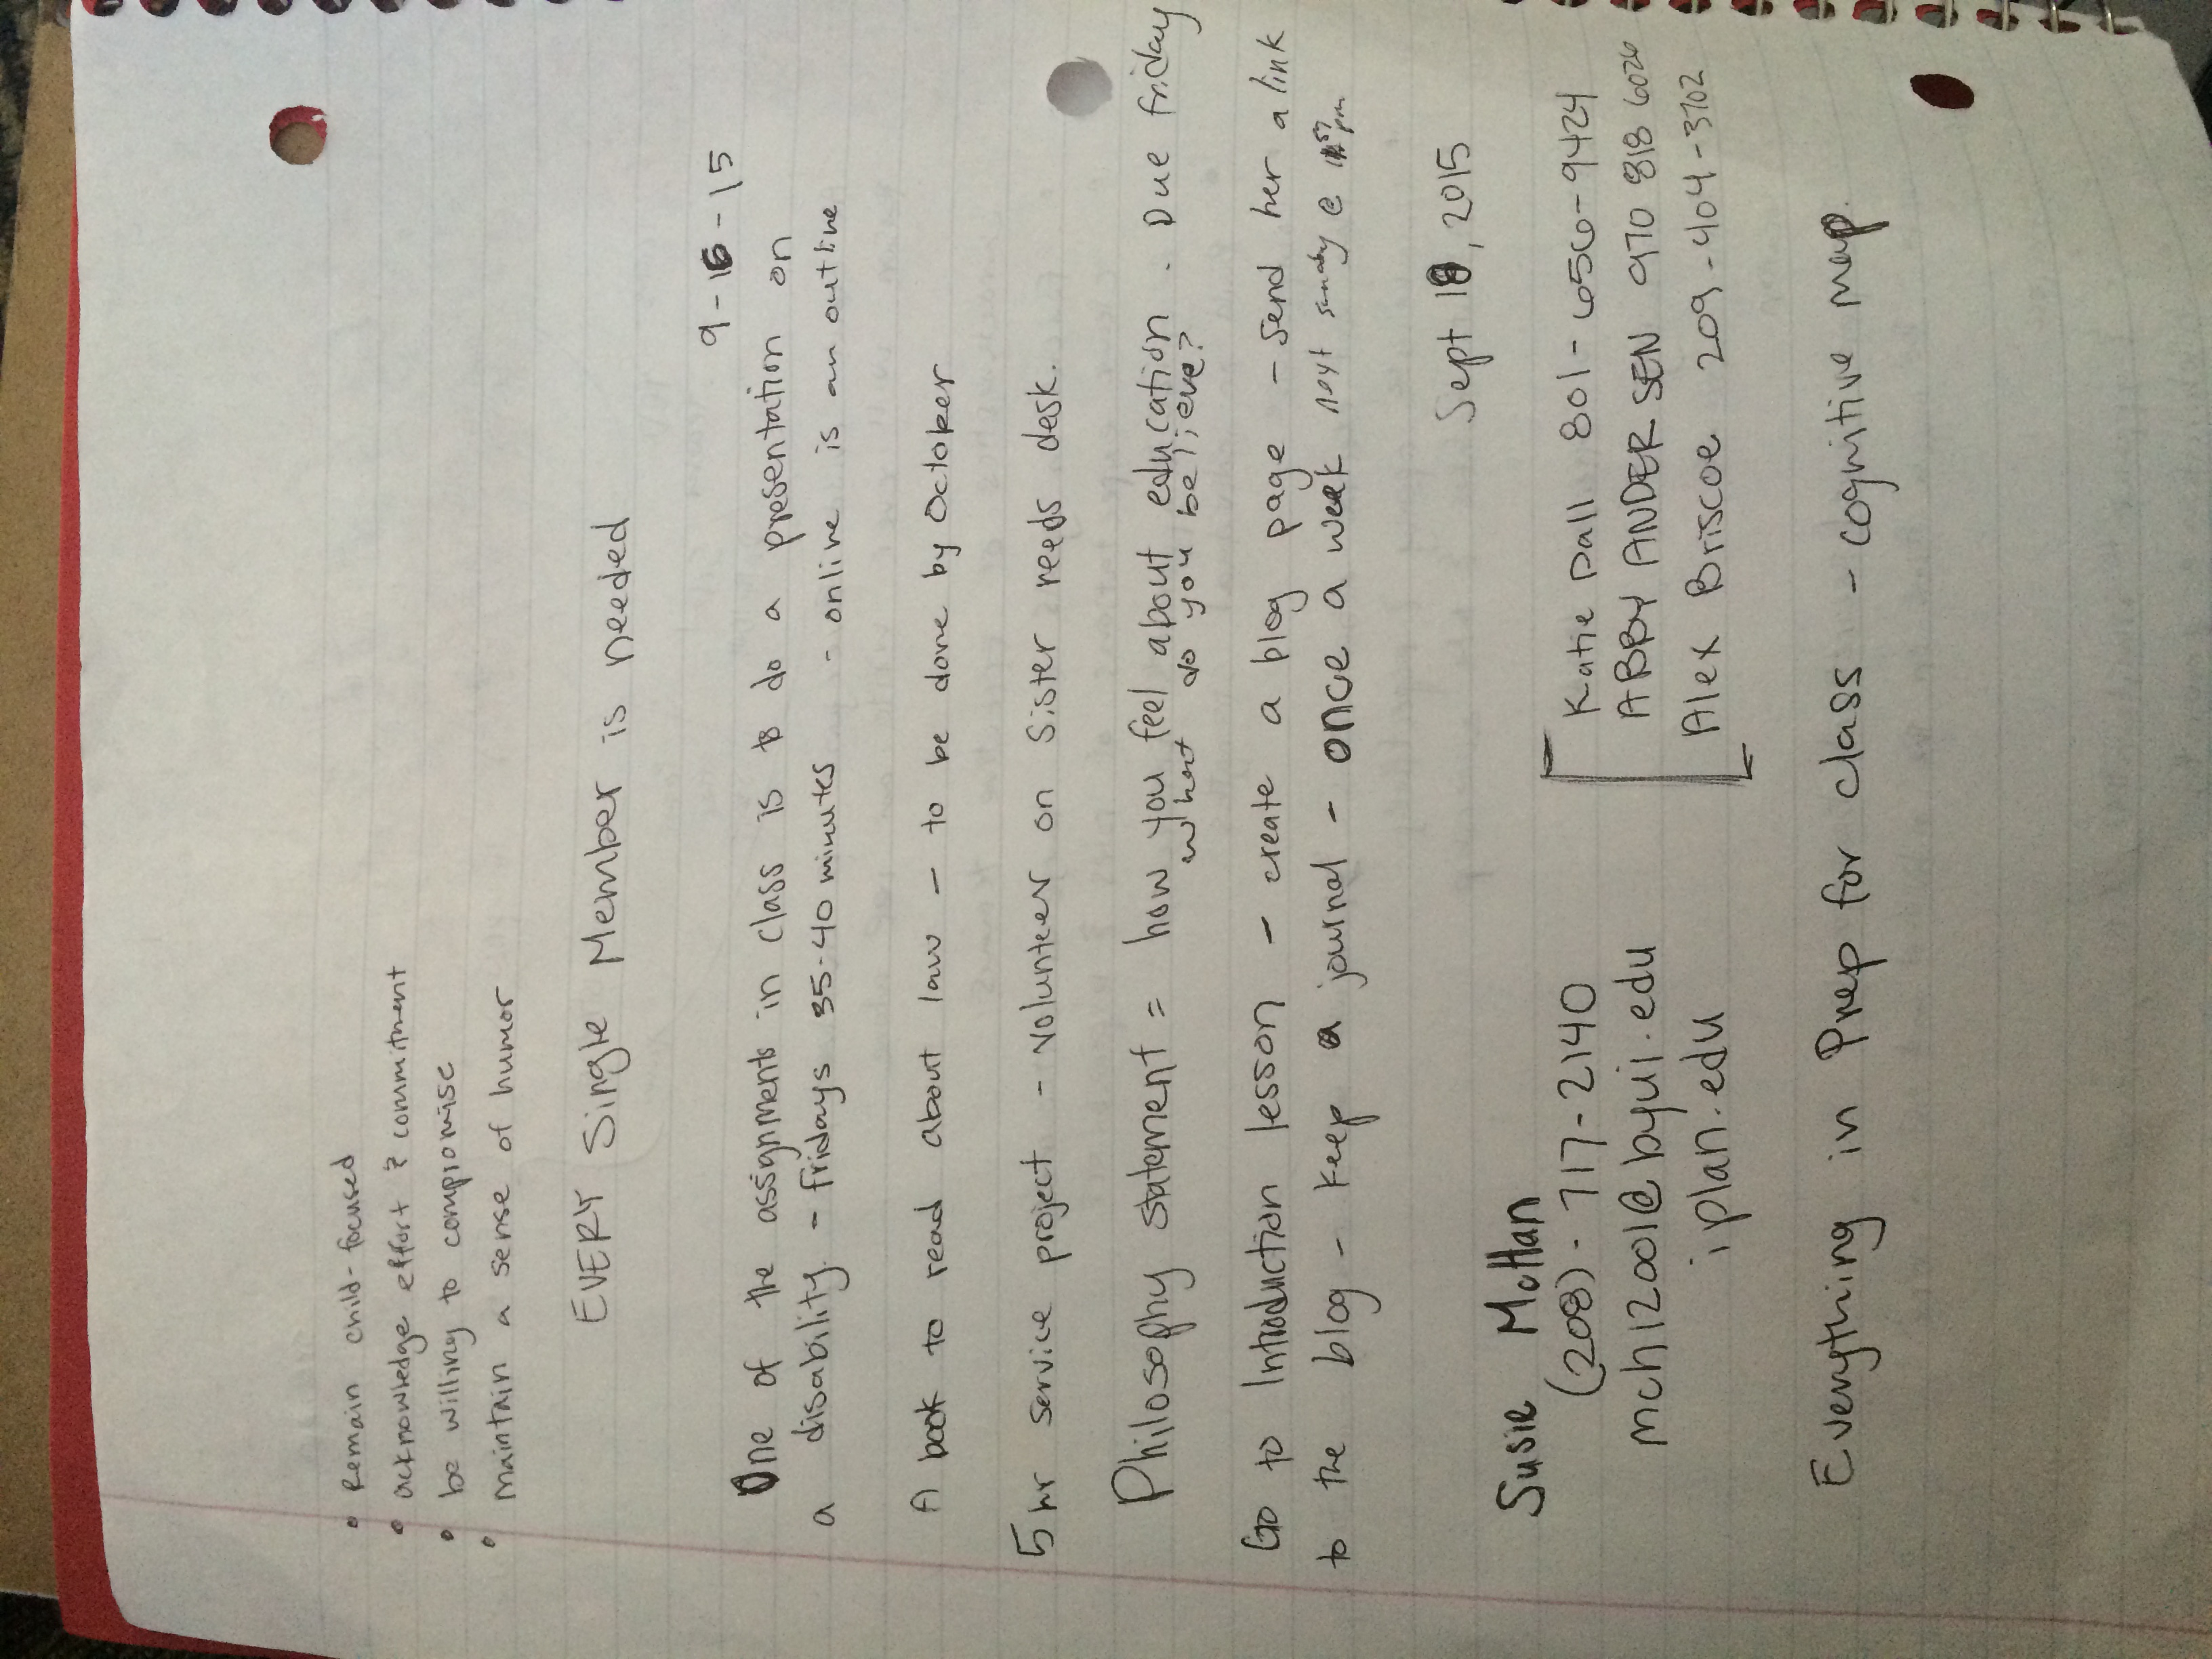 • Remain child-focused
• acknowledge effort & commitment
• be willing to compromise
• maintain a sense of humor
EVERY Single Member is needed
9-16-15
One of the assignments in class is to do a presentation on
a disability. - fridays 35-40 minutes - online is an outline
A book to read about law - to be done by October
5 hr service project - volunteer on Sister reeds desk.
Philosophy statement = how you feel about education. Due friday
what do you believe?
Go to Introduction lesson - create a blog page - send her a link
to the blog - keep a journal - once a week next sunday @ pm
Sept 18, 2015
Susie
(208)-717-2140
mch12001@byui.edu
iplan.edu
Katie Dall 801-656-9424
ABBY ANDERSEN 970 818 6026
Alex Briscoe 209-404-3702
Everything in Prep for class - cognitive map.